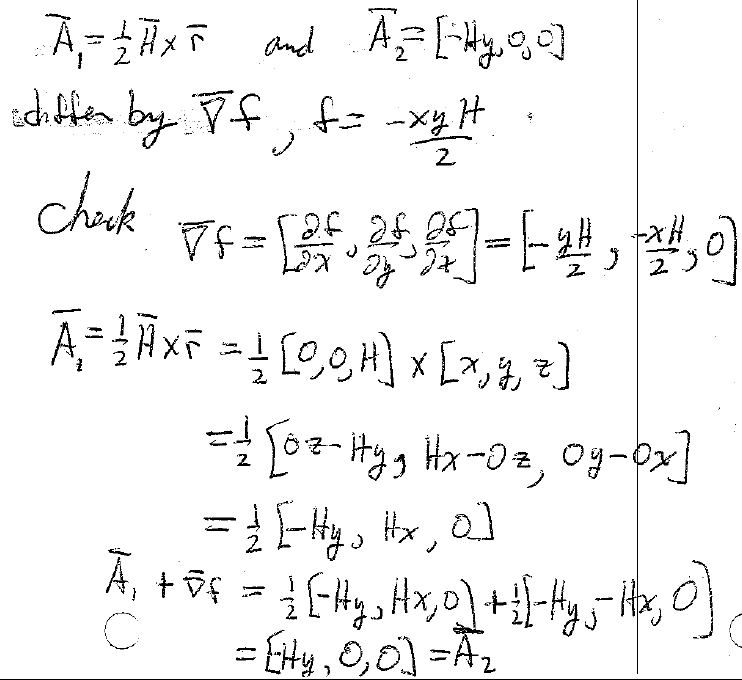 A̅₁ = ½ H̅ × r̅ and A̅₂ = [-Hy, 0, 0]
differ by ∇̅f, f = -xyH/2
Check ∇̅f = [∂f/∂x, ∂f/∂y, ∂f/∂z] = [-yH/2, -xH/2, 0]
A̅₁ = ½ H̅ × r̅ = ½ [0, 0, H] × [x, y, z]
= ½ [0z - Hy, Hx - 0z, 0y - 0x]
= ½ [-Hy, Hx, 0]
A̅₁ + ∇̅f = ½ [-Hy, Hx, 0] + ½ [-Hy, -Hx, 0]
= [-Hy, 0, 0] = A̅₂